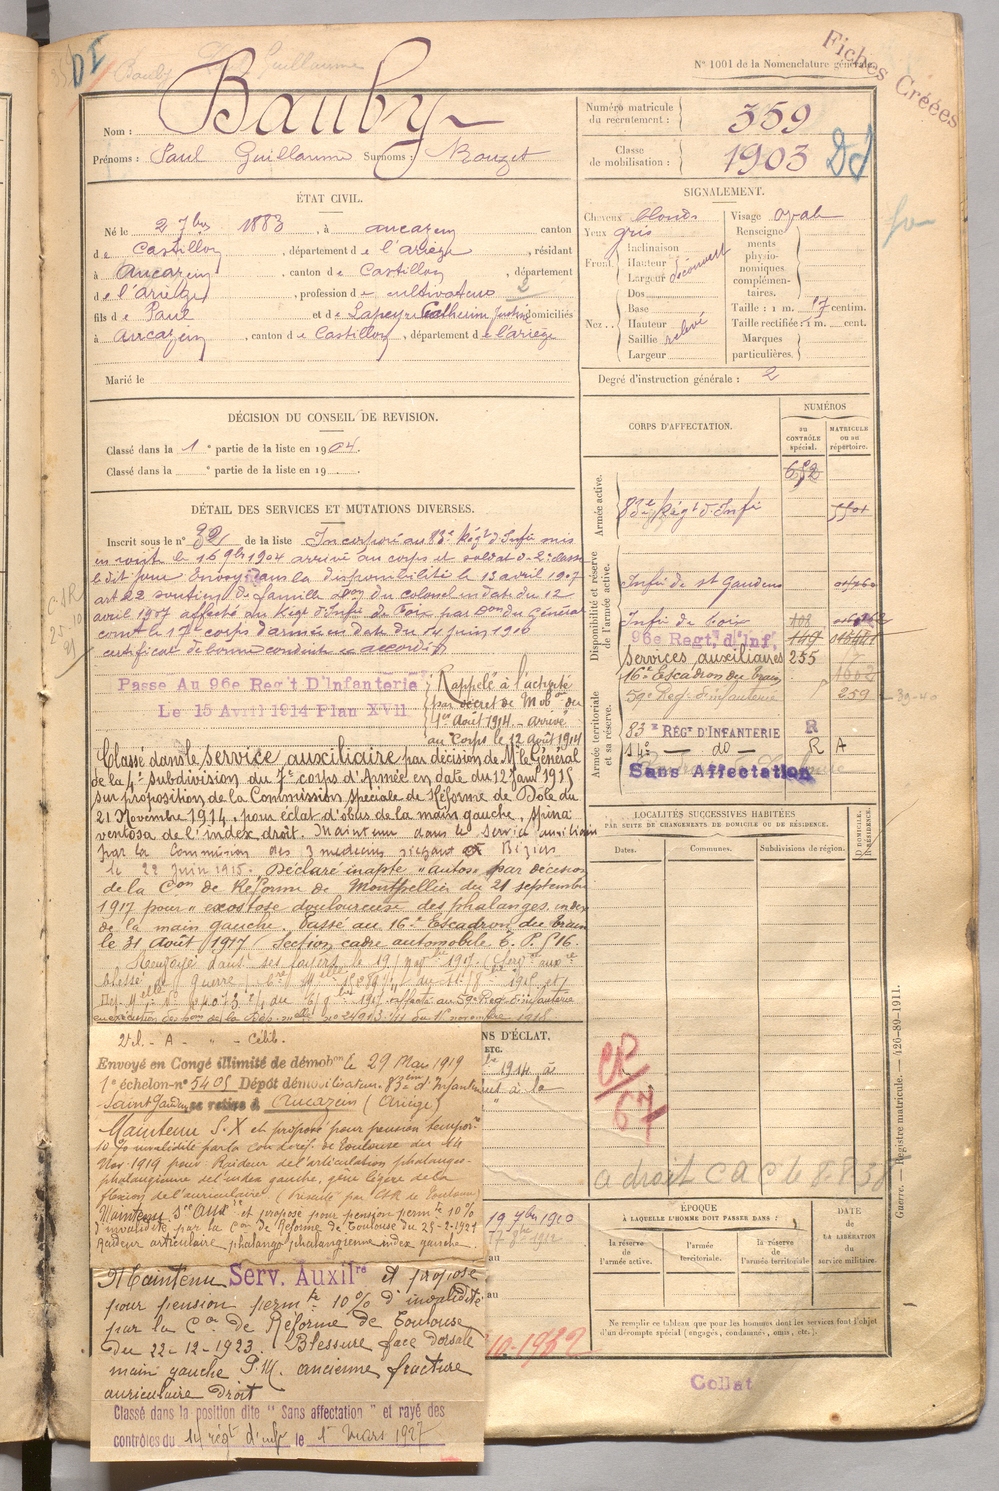 Fiches Créées
N° 1001 de la Nomenclature générale
DI
Bauby
Nom :
Prénoms : Paul Guillaume Surnoms : Rouzet
Numéro matricule du recrutement : 359
Classe de mobilisation : 1903
ÉTAT CIVIL.
Né le 2 7bre 1883, à Aucazein canton
de Castillon, département de l'ariège, résidant
à Aucazein, canton de Castillon, département
de l'ariège, profession de cultivateur 2
fils de Paul et de Lapeyre Catherine domiciliés
à Aucazein, canton de Castillon, département de l'ariège
Marié le
SIGNALEMENT.
Cheveux blonds Visage ovale
Yeux gris
Front Inclinaison
Hauteur
Largeur découvert
Nez Dos
Base
Hauteur
Saillie relevé
Largeur
Renseignements physionomiques complémentaires.
Taille : 1 m. 17 centim.
Taille rectifiée : 1 m. cent.
Marques particulières.
Degré d'instruction générale : 2
DÉCISION DU CONSEIL DE REVISION.
Classé dans la 1e partie de la liste en 1904.
Classé dans la e partie de la liste en 19
DÉTAIL DES SERVICES ET MUTATIONS DIVERSES.
Inscrit sous le n° 32 de la liste Incorporé au 83e Régt d'Infie mis
en route le 16 9bre 1904 arrivé au corps et soldat de 2e classe
le dit jour Envoyé dans la disponibilité le 13 avril 1907
art 22 soutien de famille Don du colonel en date du 12
avril 1907 affecté au Régt d'Infie de Foix par Don du Général
comt le 17e corps d'armée en date du 14 juin 1910
certificat de bonne conduite accordé
Passe Au 96e Reg't D'Infanterie
Le 15 Avril 1914 Plan XVII
Rappelé à l'activité
par décret de Mobon du
1er Août 1914 - arrivé
au Corps le 12 août 1914
Classé dans le service auxiliaire par décision de Mr le Général
de la 4e subdivision du 7e corps d'Armée en date du 12 Janv 1915
sur proposition de la Commission spéciale de Réforme de Dole du
21 Novembre 1914, pour éclat d'obus de la main gauche, spina
ventosa de l'index droit. Maintenu dans le service auxiliaire
par la Commission des 3 medecins siégeant à Béziers
le 22 Juin 1915. Déclaré inapte "autos" par décision
de la Con de Réforme de Montpellier du 21 septembre
1917 pour "exostose douloureuse des phalanges, index
de la main gauche. Passé au 16e Escadron du train
le 31 août 1917 (Section cadre automobile T. P. 516.
Renvoyé dans ses foyers le 19
affecté au 59e Reg d'infanterie
Vel. - A - " - Célib.
Envoyé en Congé illimité de démobon le 29 Mars 1919
1er échelon - n° 5405 Dépôt démobilisateur 83ème d'Infanterie
Saint Gaudens se retire à Aucazein (Ariège)
Maintenu S.X et proposé pour pension tempore
10 % invalidité par la con de réf. de Toulouse du 14
Nov 1919 pour Raideur de l'articulation phalango-
phalangienne de l'index gauche, gêne légère de la
flexion de l'auriculaire
Maintenu et proposé pour pension permte 10 %
d'invalidité par la Con de Réforme de Toulouse du 25-2-1921
Raideur articulaire phalango phalangienne index gauche.
Maintenu Serv. Auxilre et proposé
pour pension permte 10 % d'invalidité
par la Con de Réforme de Toulouse
du 22-12-1923. Blessure face dorsale
main gauche P.M. ancienne fracture
auriculaire Droit
Classé dans la position dite "Sans affectation" et rayé des
contrôles du 14 régt d'inf le 1er mars 1927
CORPS D'AFFECTATION.
NUMÉROS
au CONTRÔLE spécial.
MATRICULE ou au répertoire.
Armée active.
83e Régt d'Infie
Disponibilité et réserve de l'armée active.
Infie de st Gaudens
Infie de Foix
96e Regt. d'Inf.
services auxiliaires 255
16e Escadron du train
59e Reg d'infanterie 259
Armée territoriale et sa réserve.
83e RÉGt D'INFANTERIE R
14e — do — R A
Sans Affectation
LOCALITÉS SUCCESSIVES HABITÉES
PAR SUITE DE CHANGEMENTS DE DOMICILE OU DE RÉSIDENCE.
Dates. Communes. Subdivisions de région.
D. DOMICILE.
R. RÉSIDENCE.
NS D'ÉCLAT,
ETC.
1914 à
CR
67
a droit C A C le 8.8.38
19 7bre 1910
au
au
10-1932
ÉPOQUE
À LAQUELLE L'HOMME DOIT PASSER DANS :
la réserve de l'armée active.
l'armée territoriale.
la réserve de l'armée territoriale
DATE DE LA LIBÉRATION du service militaire.
Ne remplir ce tableau que pour les hommes dont les services font l'objet
d'un décompte spécial (engagés, condamnés, omis, etc.).
Collat
Guerre. — Registre matricule. — 426-80-1911.